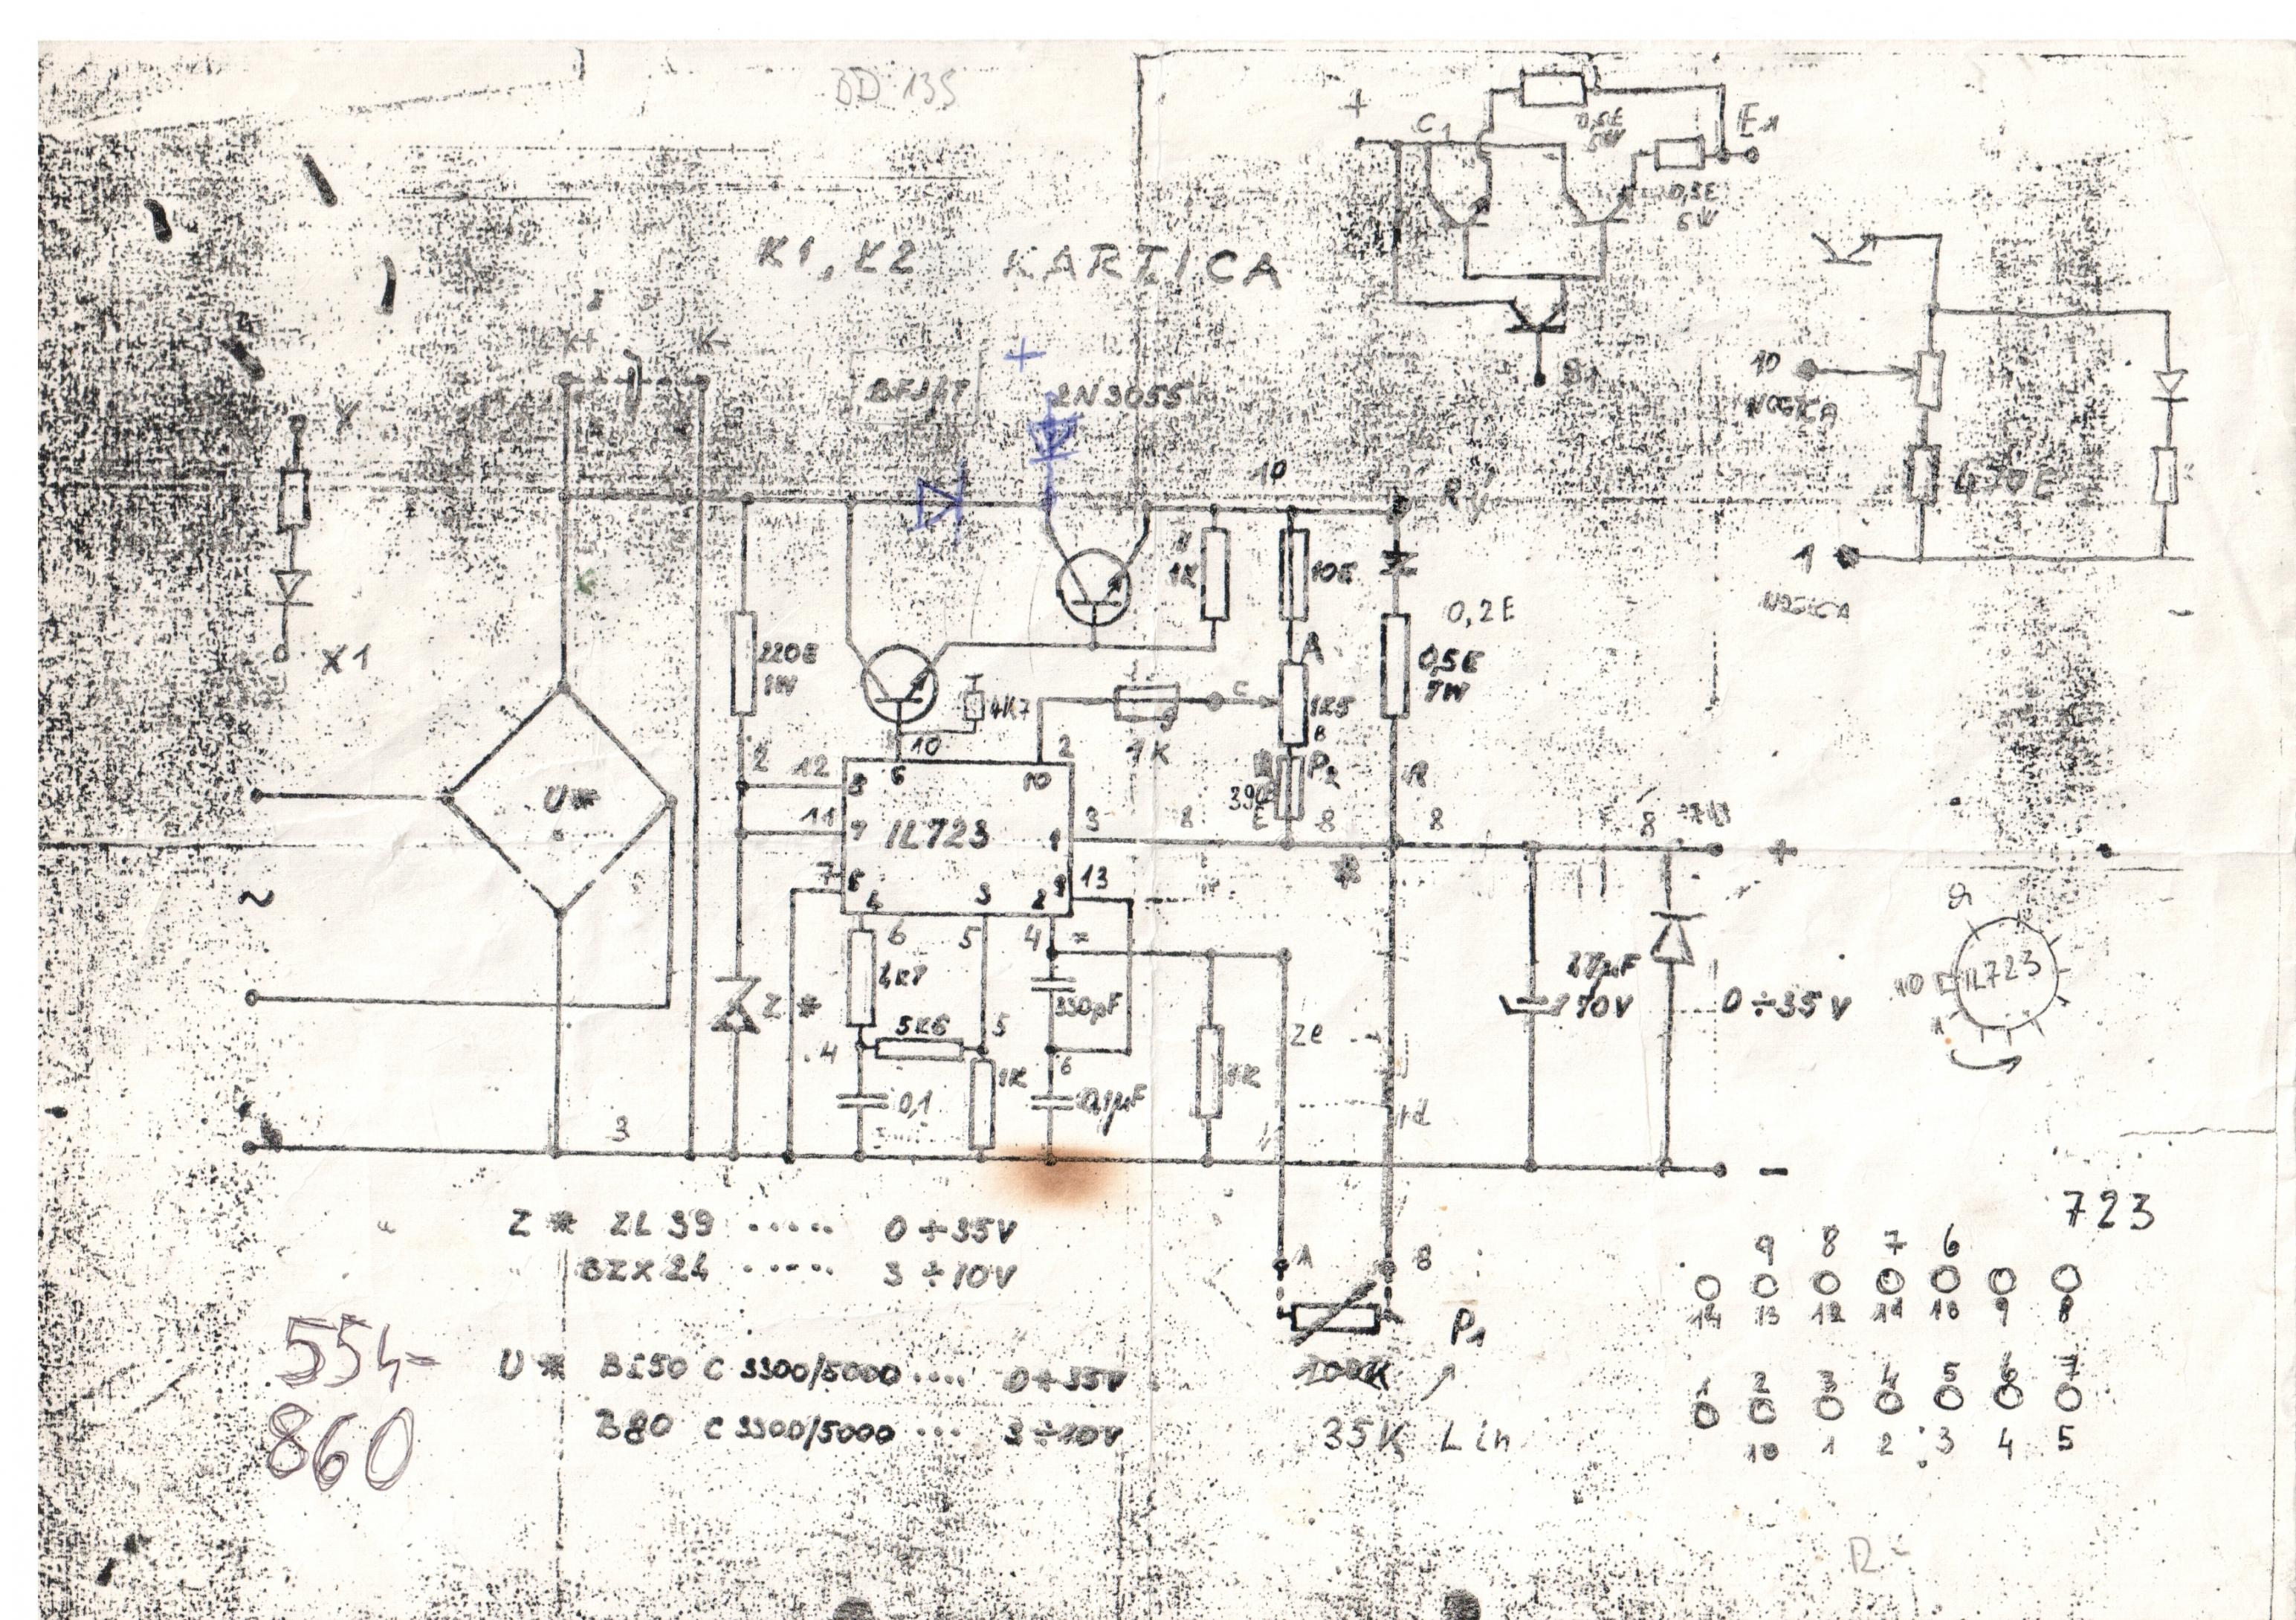 BD 135
+
C1
0,5E
5W
E1
0,5E
5W
B1
K1, K2 KARTICA
K+
K-
+
2N3055
X
X1
10
NOGICA
470E
1
NOGICA
-
10
1K
10E
0,2E
0,5E
7W
220E
1W
4K7
A
C
1K5
B
P2
390
E
1K
R
2
12
10
2
8
6
10
11
7
IL723
1
3
8
8
8
8
+
7
5
4
3
2
9
13
*
U*
~
6
5
4
4K7
330pF
Z*
5K6
5
4
1K
6
0,1
0,1µF
1K
47µF
70V
0÷35V
9
10
IL723
3
-
Z* ZL 39 ...... 0÷35V
BZX24 ..... 3÷10V
A
B
P1
100K
35K Lin
554-
860
U* B250 C 3300/5000 .... 0÷35V
B80 C 3300/5000 ... 3÷10V
723
9 8 7 6
14 13 12 11 10 9 8
1 2 3 4 5 6 7
10 1 2 3 4 5